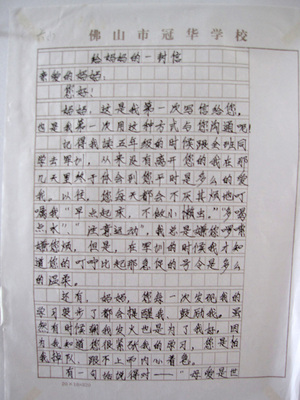 佛山市冠华学校
给妈妈的一封信
亲爱的妈妈：
您好！
妈妈，这是我第一次写信给您，
也是我第一次用这种方式与您沟通吧！
记得我读五年级的时候跟全班同
学去军训，从来没有离开您的我在那
几天里终于体会到您平时是多么的爱
我。以前，您每天都会不厌其烦地叮
嘱我“早点起床，不做小懒虫”，“多喝
点水”“注意运动”，我总是
您烦，但是，在军训的时候我才知
道您的叮咛比起那急促的号令是多么
的温柔。
还有，妈妈，您每一次发现我的
学习退步了都会提醒我、鼓励我。虽
然有时候朝我发火也是为了我好，因
为我知道您很紧张我的学习，您是怕
我掉队，跟不上而内心着急。
有一句俗话得对——“母爱是世